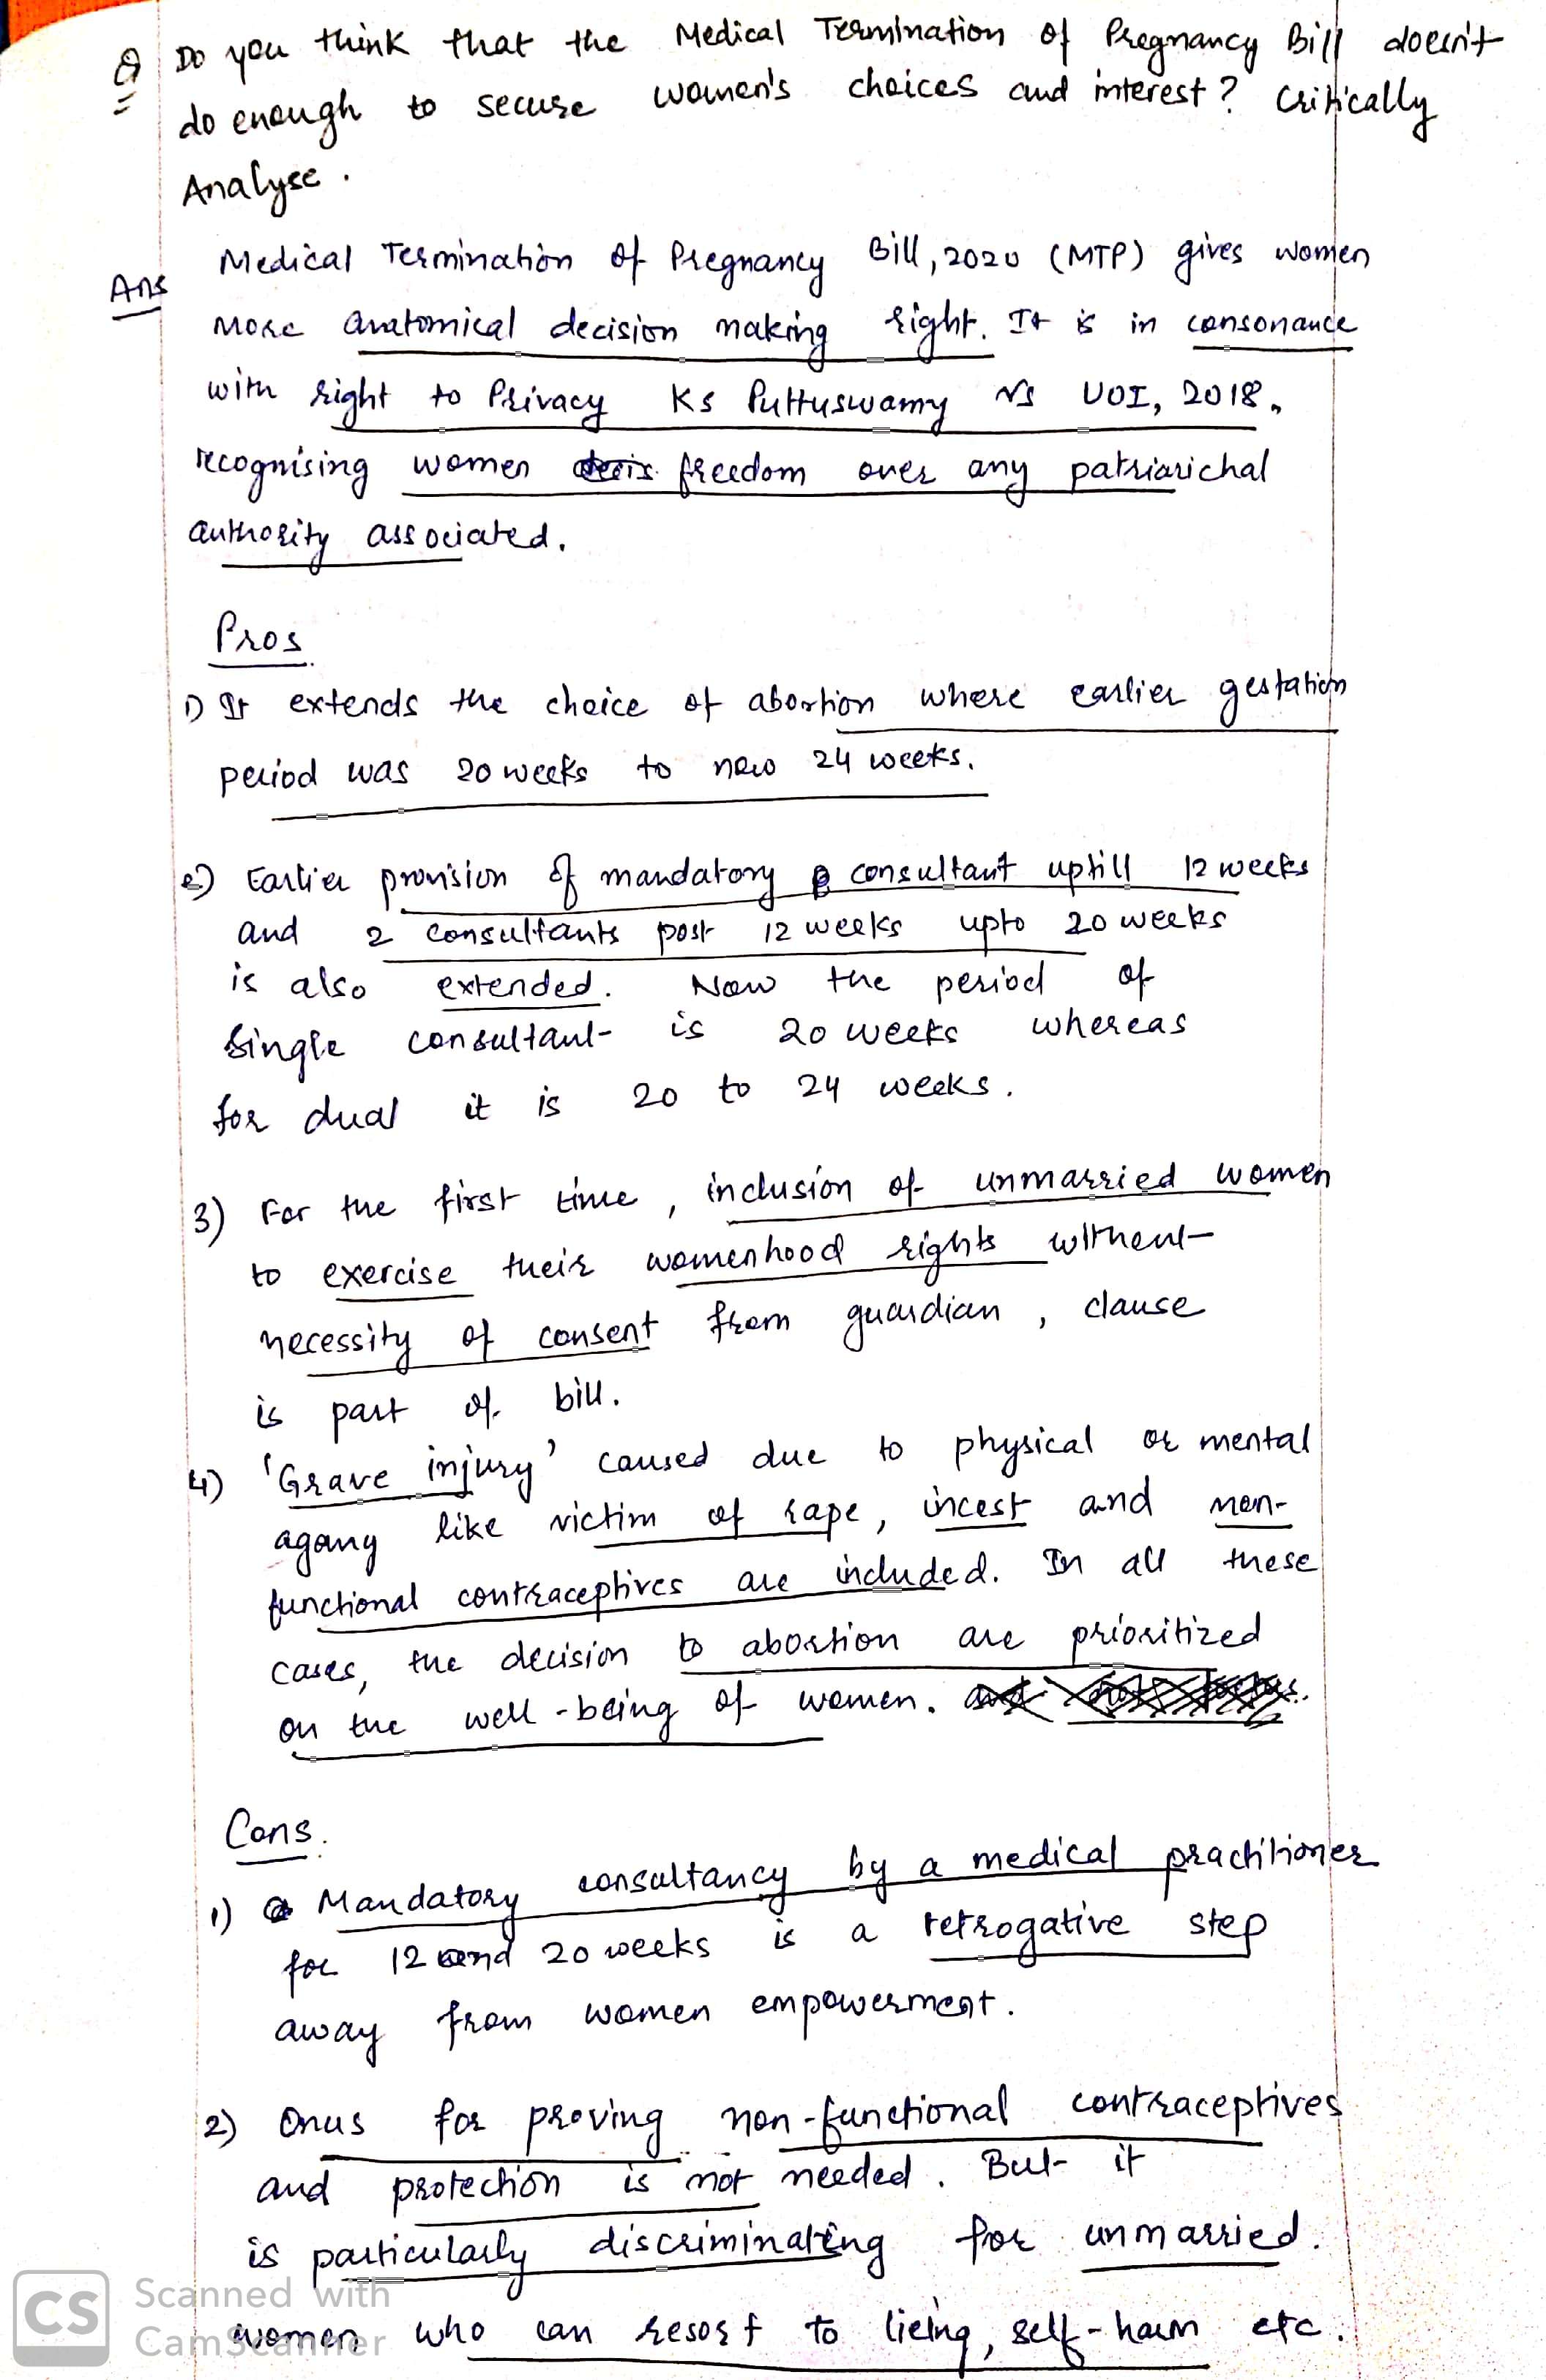 Q Do you think that the Medical Termination of Pregnancy Bill doesn't
do enough to secure women's choices and interest? Critically
Analyse.
Ans Medical Termination of Pregnancy Bill, 2020 (MTP) gives women
more anatomical decision making right. It is in consonance
with right to Privacy KS Puttuswamy Vs UOI, 2018,
recognising women freedom over any patriarichal
authority associated.
Pros
1) It extends the choice of abortion where earlier gestation
period was 20 weeks to new 24 weeks.
2) Earlier provision of mandatory consultant uptill 12 weeks
and 2 consultants post 12 weeks upto 20 weeks
is also extended. Now the period of
single consultant is 20 weeks whereas
for dual it is 20 to 24 weeks.
3) For the first time, inclusion of unmarried women
to exercise their womenhood rights without
necessity of consent from guardian, clause
is part of bill.
4) 'Grave injury' caused due to physical or mental
agony like victim of rape, incest and non-
functional contraceptives are included. In all these
cases, the decision to abortion are prioritized
on the well-being of women.
Cons.
1) Mandatory consultancy by a medical practitioner
for 12 and 20 weeks is a retrogative step
away from women empowerment.
2) Onus for proving non-functional contraceptives
and protection is not needed. But it
is particularly discriminating for unmarried
women who can resort to lieing, self-harm etc.
CS Scanned with
CamScanner